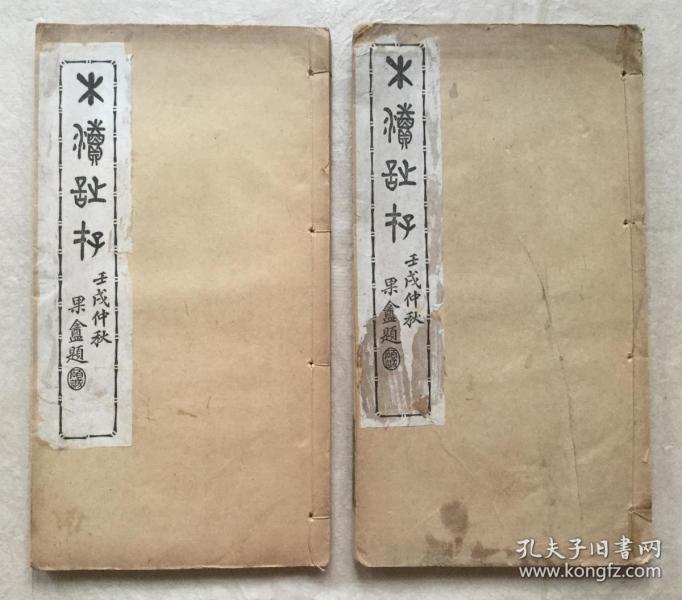 木瀆詩存
壬戌仲秋
果盦題
木瀆詩存
壬戌仲秋
果盦題
孔夫子旧書网
www.kongfz.com